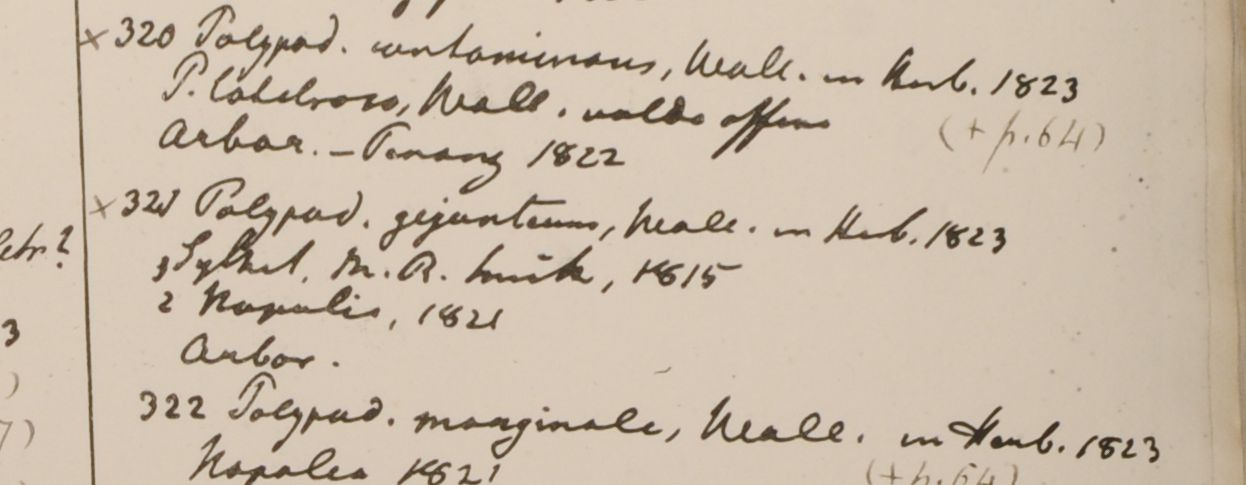 × 320 Polypod. contaminans, Wall. in Herb. 1823
P. Wall. valde affine (+ p. 64)
Arbor. – Penang 1822
× 321 Polypod. giganteum, Wall. in Herb. 1823
Sylhet, M. R. Smith, 1815
2 Napalia, 1821
Arbor.
322 Polypod. marginale, Wall. in Herb. 1823
Napalia 1821 (+ p. 64)
3